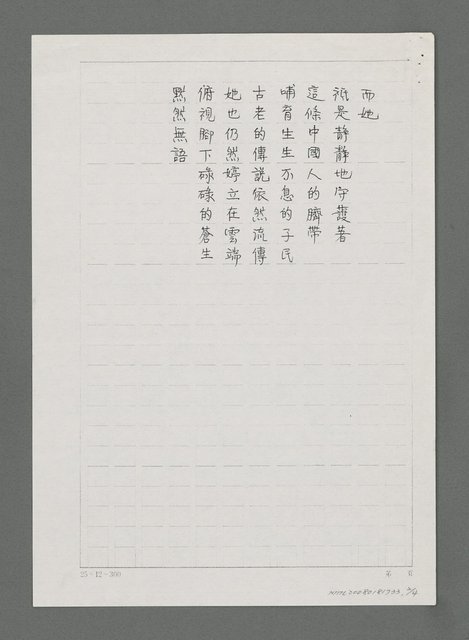 而她
祇是靜靜地守護著
這條中國人的臍帶
哺育生生不息的子民
古老的傳說依然流傳
她也仍然婷立在雲端
俯視腳下碌碌的蒼生
黙然無語
25×12=300
第 頁